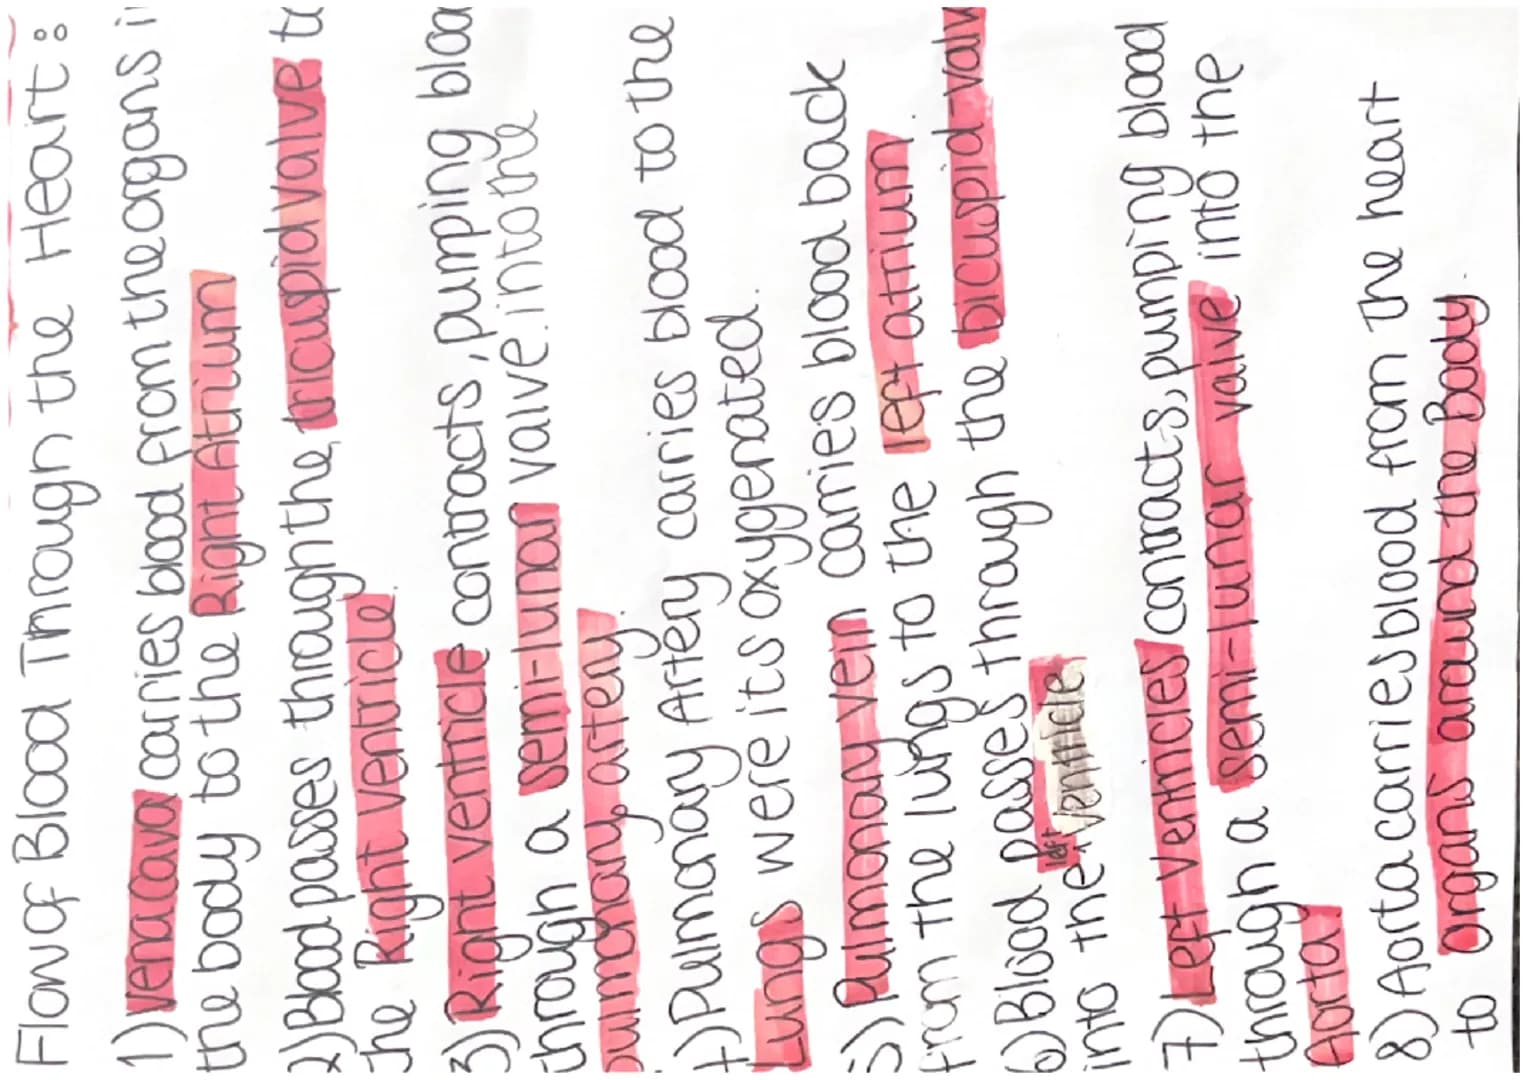 Flow of Blood Through the Heart:
1) Vena cava carries blood from the organs
the body to the Right Atrium
2) Blood passes through the, tricuspid valve
the Right ventricle.
3) Right ventricle contracts, pumping
through a semi-lunar valve. into the
pulmonary, artery.
4) Pulmonary Artery carries blood to the
Lungs were its oxygenated.
5) Pulmonary vein carries blood back
from the lungs to the left atrium.
6) Blood passes through the bicuspid-valv
into the left ventricle
7) Left ventricles contracts, pumping blood
through a semi-lunar valve into the
Aorta.
8) Aorta carries blood from the heart
to organs around the Body.